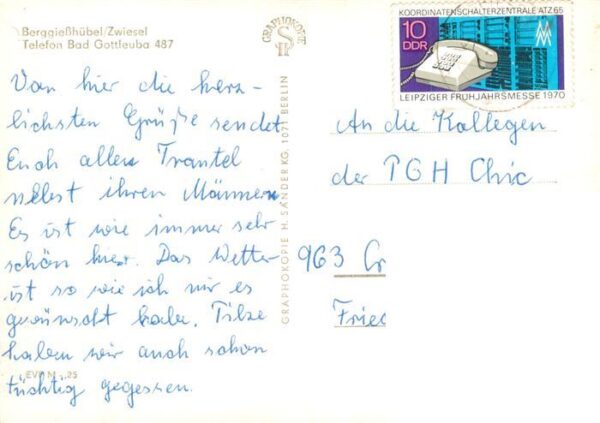 Berggießhübel/Zwiesel
Telefon Bad Gottleuba 487
Von hier die herz-
lichsten Grüße sendet
Euch allen Trantel
nebst ihren Männern
Es ist wie immer sehr
schön hier. Das Wetter
ist so wie ich mir es
gewünscht habe. Pilze
haben wir auch schon
tüchtig gegessen.
EVP M -.25
GRAPHOKOPIE H. SANDER KG, 1071 BERLIN
GRAPHOKOPIE
HS
KOORDINATENSCHALTERZENTRALE ATZ 65
10
DDR
MM
LEIPZIGER FRÜHJAHRSMESSE 1970
An die Kollegen
der PGH Chic
963 Cr
Fried